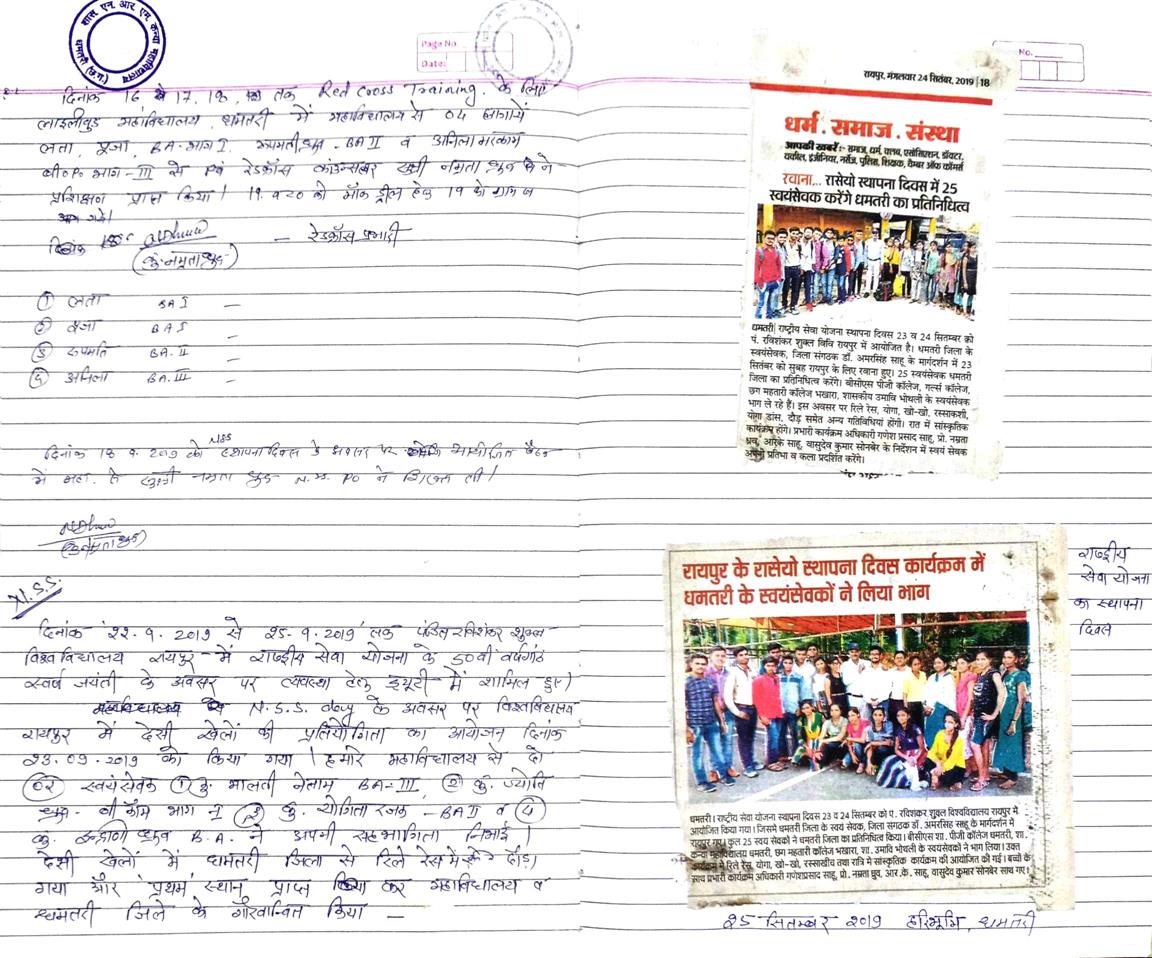 शास. एन. आर. एम. कन्या महाविद्यालय
धमतरी (छ.ग.)
Page No
Date:
दिनांक 16 से 17, 18, तक Red Cross Training. के लिए
महाविद्यालय, धमतरी में महाविद्यालय से 04 छात्रायें
लता, पूजा, BA-भाग I, BA II व अनिला मरकाम
भाग-III से रेडक्रॉस काउन्सलर सुश्री नम्रता ध्रुव ने
प्रशिक्षण प्राप्त किया। 19 व 20 को मॉक ड्रील हेतु
गये।
दिनांक
(कु. नम्रता ध्रुव)
- रेडक्रॉस प्रभारी
① लता BA I –
② पूजा BA I –
③ रुपमति BA. II –
④ अनिला BA. III –
दिनांक 18.9.2019 को NSS स्थापना दिवस के अवसर पर आयोजित बैठक
में महा. के सुश्री नम्रता ध्रुव N.S. PO ने शिरकत ली।
(कु. नम्रता ध्रुव)
N.S.S.
दिनांक 22.9.2019 से 25.9.2019 तक पंडित रविशंकर शुक्ल
विश्वविद्यालय रायपुर में राष्ट्रीय सेवा योजना के 50वीं वर्षगांठ
स्वर्ण जयंती के अवसर पर व्यवस्था हेतु ड्यूटी में शामिल हुए।
N.S.S. day के अवसर पर विश्वविद्यालय
रायपुर में देसी खेलों की प्रतियोगिता का आयोजन दिनांक
23.09.2019 को किया गया। हमारे महाविद्यालय से दो
02 स्वयंसेवक ① कु. मालती नेताम BA-III, ② कु. ज्योति
ध्रुव - बी कॉम भाग ③ कु. योगिता रजक - BA II व ④
कु. इन्द्राणी ध्रुव B.A. ने अपनी सहभागिता निभाई।
देसी खेलों में धमतरी जिला से रिले रेस में दौड़ा
गया और प्रथम स्थान प्राप्त कर महाविद्यालय व
धमतरी जिले के गौरवान्वित किया –
No.
रायपुर, मंगलवार 24 सितंबर, 2019 | 18
धर्म . समाज . संस्था
आपकी खबरें :- समाज, धर्म, क्लब, एसोसिएशन, डॉक्टर,
वकील, इंजीनियर, नर्सेज, पुलिस, शिक्षक, चैम्बर ऑफ कॉमर्स
रवाना... रासेयो स्थापना दिवस में 25
स्वयंसेवक करेंगे धमतरी का प्रतिनिधित्व
धमतरी| राष्ट्रीय सेवा योजना स्थापना दिवस 23 व 24 सितम्बर को
पं. रविशंकर शुक्ल विवि रायपुर में आयोजित है। धमतरी जिला के
स्वयंसेवक, जिला संगठक डॉ. अमरसिंह साहू के मार्गदर्शन में 23
सितंबर को सुबह रायपुर के लिए रवाना हुए। 25 स्वयंसेवक धमतरी
जिला का प्रतिनिधित्व करेंगे। बीसीएस पीजी कॉलेज, गर्ल्स कॉलेज,
छग महतारी कॉलेज भखारा, शासकीय उमावि भोथली के स्वयंसेवक
भाग ले रहे हैं। इस अवसर पर रिले रेस, योगा, खो-खो, रस्साकशी,
योगा डांस, दौड़ समेत अन्य गतिविधियां होंगी। रात में सांस्कृतिक
कार्यक्रम होंगे। प्रभारी कार्यक्रम अधिकारी गणेश प्रसाद साहू, प्रो. नम्रता
ध्रुव, आरके साहू, वासुदेव कुमार सोनबेर के निर्देशन में स्वयं सेवक
अपनी प्रतिभा व कला प्रदर्शित करेंगे।
रायपुर के रासेयो स्थापना दिवस कार्यक्रम में
धमतरी के स्वयंसेवकों ने लिया भाग
राष्ट्रीय
सेवा योजना
का स्थापना
दिवस
धमतरी। राष्ट्रीय सेवा योजना स्थापना दिवस 23 व 24 सितम्बर को पं. रविशंकर शुक्ल विश्वविद्यालय रायपुर में
आयोजित किया गया। जिसमे धमतरी जिला के स्वयं सेवक, जिला संगठक डॉ. अमरसिंह साहू के मार्गदर्शन में
रायपुर गए। कुल 25 स्वयं सेवको ने धमतरी जिला का प्रतिनिधित्व किया। बीसीएस शा. पीजी कॉलेज धमतरी, शा.
कन्या महाविद्यालय धमतरी, छग महतारी कॉलेज भखारा, शा. उमावि भोथली के स्वयसेवको ने भाग लिया। उक्त
कार्यक्रम में रिले रेस, योगा, खो-खो, रस्साखीच तथा रात्रि मे सांस्कृतिक कार्यक्रम की आयोजित की गई। बच्चो के
साथ प्रभारी कार्यक्रम अधिकारी गणेशप्रसाद साहू, प्रो. नम्रता ध्रुव, आर.के. साहू, वासुदेव कुमार सोनबेर साथ गए।
25 सितम्बर 2019 हरिभूमि, धमतरी